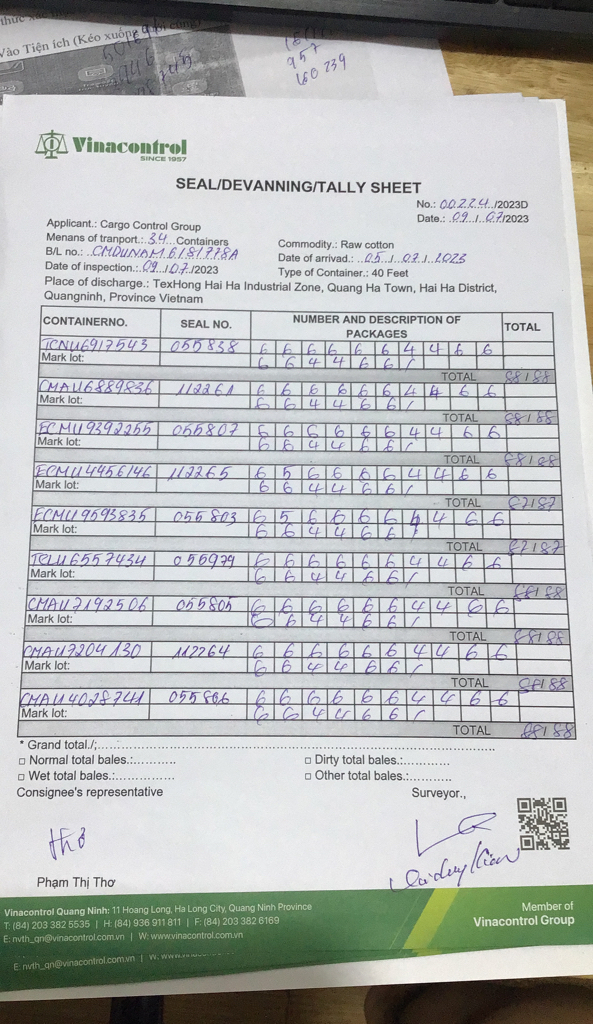 Vào Tiện ích (Kéo xuống
957
160 239
Vinacontrol
SINCE 1957
SEAL/DEVANNING/TALLY SHEET
No.: 00224/2023D
Date.: 09/07/2023
Applicant.: Cargo Control Group
Menans of tranport.: 34 Containers
Commodity.: Raw cotton
B/L no.: CMDUNAM6181778A
Date of arrivad.: 05/07/2023
Date of inspection.: 09/07/2023
Type of Container.: 40 Feet
Place of discharge.: TexHong Hai Ha Industrial Zone, Quang Ha Town, Hai Ha District,
Quangninh, Province Vietnam
CONTAINERNO. SEAL NO. NUMBER AND DESCRIPTION OF PACKAGES TOTAL
TCNU6917543 055838 6 6 6 6 6 6 4 4 6 6
Mark lot: 6 6 4 4 6 6 /
TOTAL 88/88
CMAU6889836 112261 6 6 6 6 6 6 4 4 6 6
Mark lot: 6 6 4 4 6 6 /
TOTAL 88/88
ECMU9392255 055807 6 6 6 6 6 6 4 4 6 6
Mark lot: 6 6 4 4 6 6 /
TOTAL 88/88
ECMU4456146 112265 6 5 6 6 6 6 4 4 6 6
Mark lot: 6 6 4 4 6 6 /
TOTAL 87/87
ECMU9593835 055803 6 5 6 6 6 6 4 4 6 6
Mark lot: 6 6 4 4 6 6 /
TOTAL 87/87
TCLU6557434 055979 6 6 6 6 6 6 4 4 6 6
Mark lot: 6 6 4 4 6 6 /
TOTAL 88/88
CMAU7192506 055805 6 6 6 6 6 6 4 4 6 6
Mark lot: 6 6 4 4 6 6 /
TOTAL 88/88
CMAU7204130 112264 6 6 6 6 6 6 4 4 6 6
Mark lot: 6 6 4 4 6 6 /
TOTAL 88/88
CMAU4028741 055806 6 6 6 6 6 6 4 4 6 6
Mark lot: 6 6 4 4 6 6 /
TOTAL 88/88
* Grand total./;
□ Normal total bales.:........... □ Dirty total bales.:...........
□ Wet total bales.:............... □ Other total bales.:...........
Consignee's representative Surveyor.,
Thơ
Phạm Thị Thơ
Vinacontrol Quang Ninh: 11 Hoang Long, Ha Long City, Quang Ninh Province
T: (84) 203 382 5535 | H: (84) 936 911 811 | F: (84) 203 382 6169
E: nvth_qn@vinacontrol.com.vn | W: www.vinacontrol.com.vn
Member of
Vinacontrol Group
E: nvth_qn@vinacontrol.com.vn